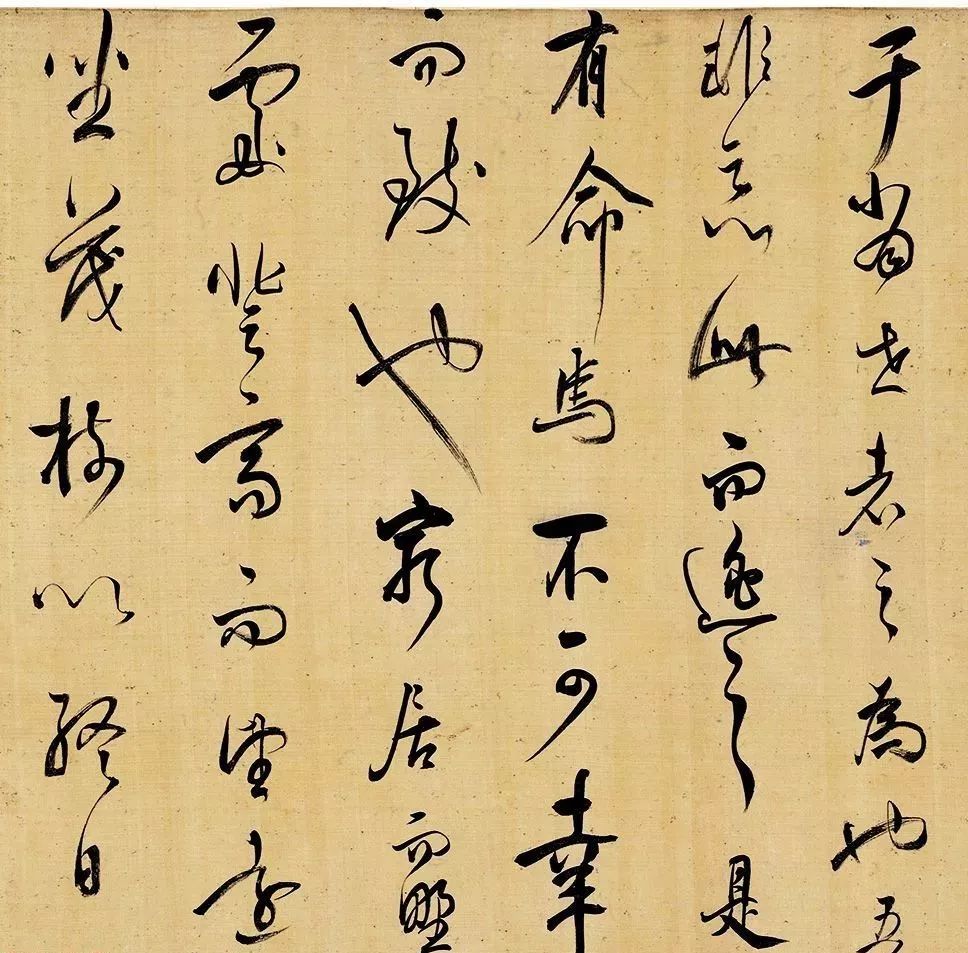 于當世者之為也吾
非惡此而逃之是
有命焉不可幸
而致也窮居而野
處登高而望遠
坐茂樹以終日